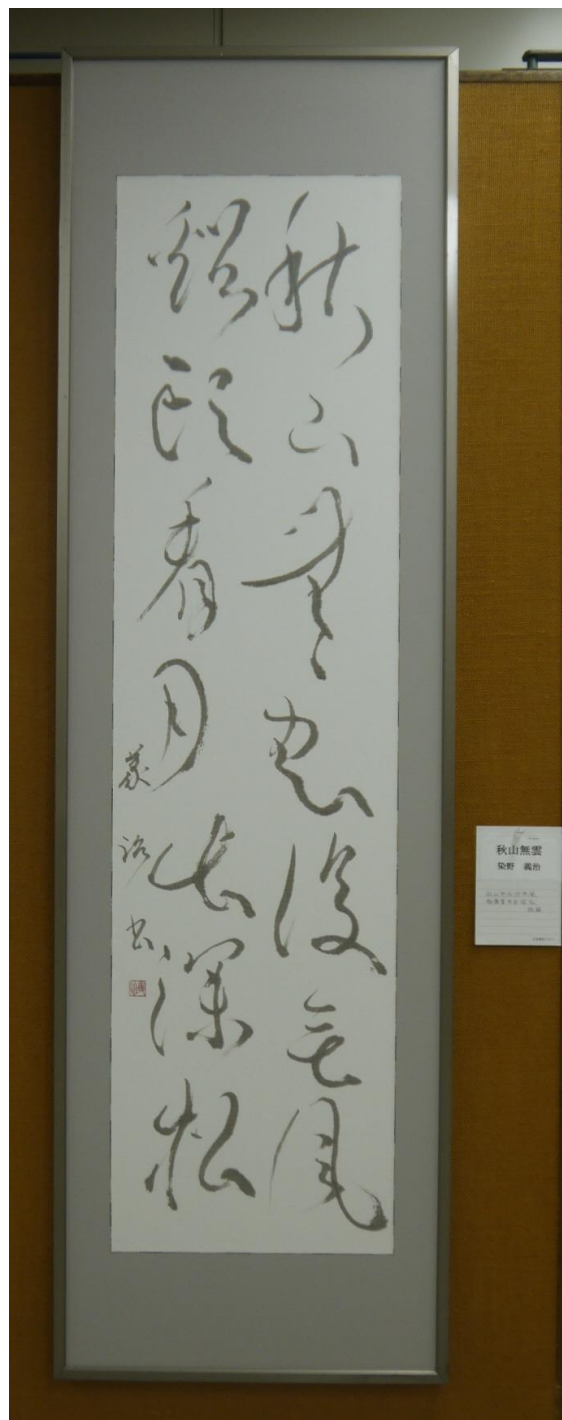 秋山無雲復无風
谿頭看月出深松
義治書
秋山無雲
染野 義治